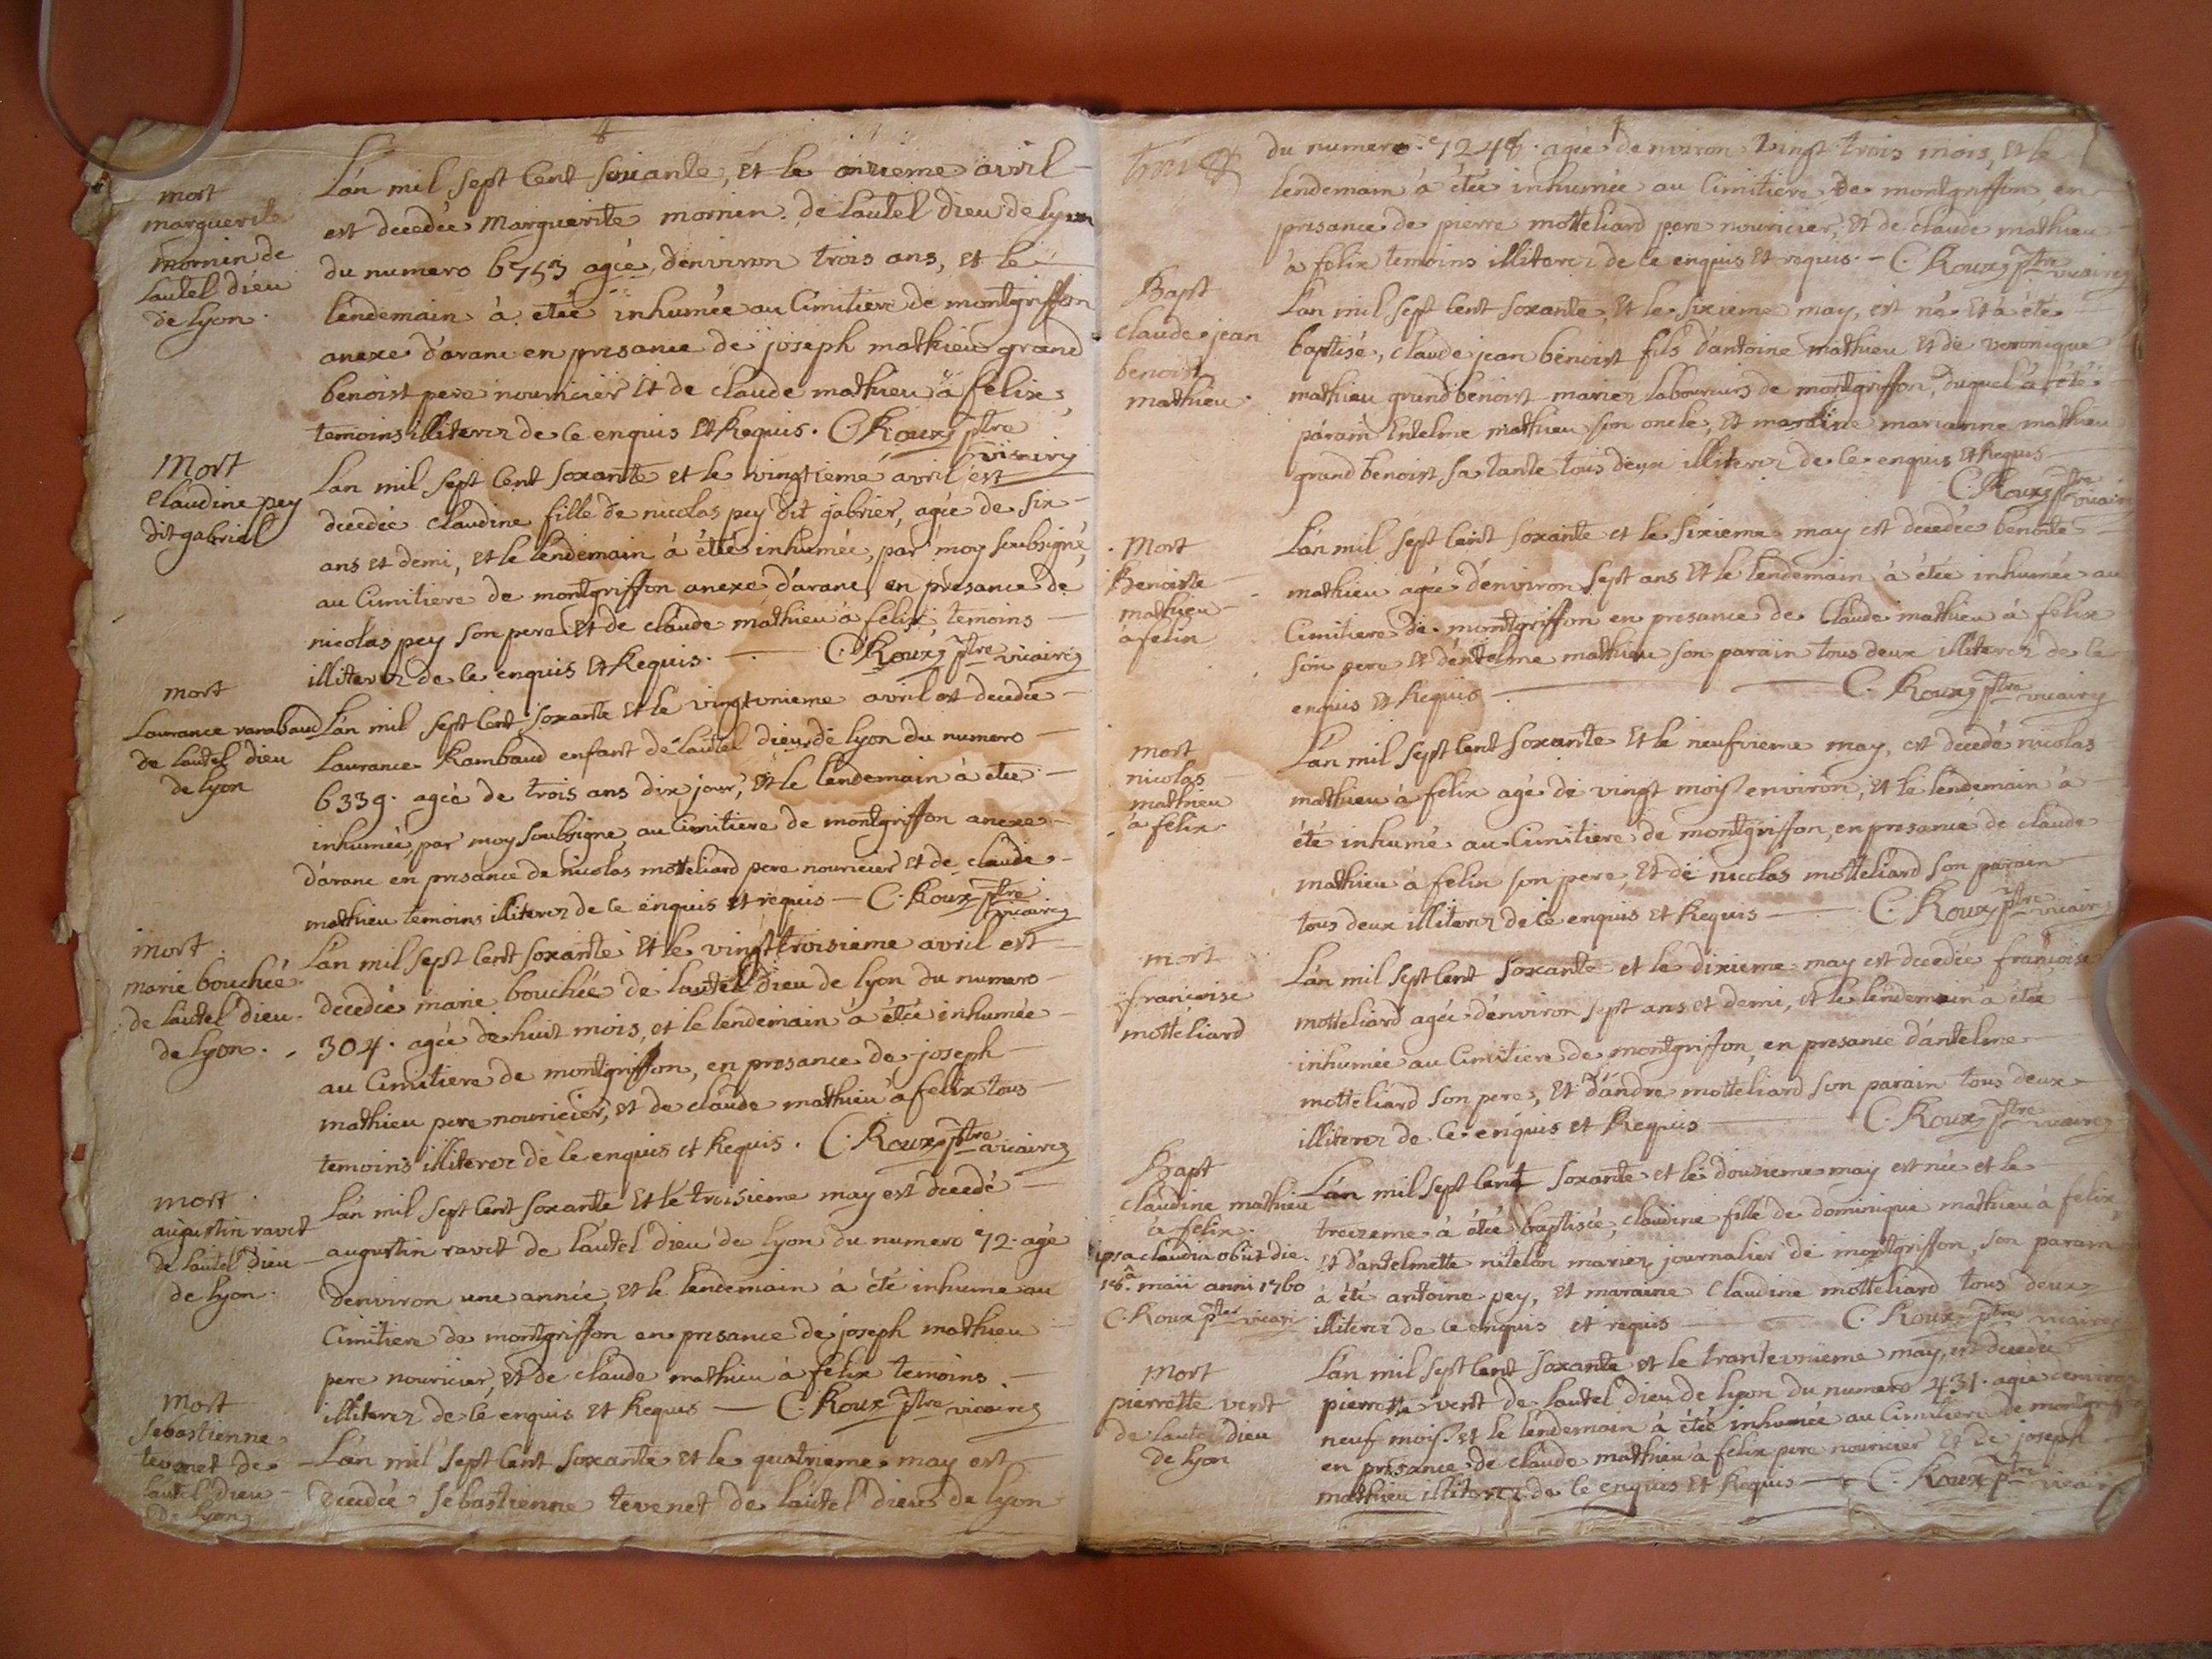 mort
marguerite
mornin de
lautel dieu
de lyon.
L'an mil sept cent soixante, et le onzieme avril
est decedée Marguerite mornin. de lautel Dieu de lyon
du numero 6753 agée, d'environ trois ans, et le
lendemain à etée inhumée au Cimitiere de montgriffon
anexe d'aranc en presance de joseph mathieu grand
benoist pere nourricier et de claude mathieu à felix,
temoins illiterez de ce enquis et Requis. C. Roux ptre
vicaire
Mort
claudine pey
dit gabriel
L'an mil sept cent soxante et le vingtieme avril est
decedée claudine fille de nicolas pey dit gabrier, agée de six
ans et demi, et le lendemain à étée inhumée, par moy soubsigné,
au Cimitiere de montgriffon anexe d'aranc en presance de
nicolas pey son pere et de claude mathieu à felix temoins
illiterez de ce enquis et Requis. C. Roux ptre vicaire
mort
Laurance rambaud
de lautel dieu
de lyon
L'an mil sept cent soxante et le vingtunieme avril est decedée
Laurance Rambaud enfant de lautel dieu de lyon du numero
6339. agée de trois ans dix jour, et le lendemain à etée
inhumée, par moy soubsigne, au Cimitiere de montgriffon anexe
d'aranc en presance de nicolas motteliard pere nouricier et de claude
mathieu temoins illiterez de ce enquis et requis — C. Roux ptre
vicaire
mort.
marie bouchée
de lautel dieu
de lyon.
L'an mil sept cent soxante et le vingt troisieme avril est
decedée marie bouchée de lautel Dieu de lyon du numero
304. agée de huit mois, et le lendemain à étée inhumée
au Cimitiere de montgriffon, en presance de joseph
mathieu pere nouricier, et de claude mathieu à felix tous
temoins illiterez de ce enquis et Requis. C. Roux ptre vicaire
mort.
augustin ravet
de lautel Dieu
de lyon.
L'an mil sept cent soxante et le troisieme may est decedé
augustin ravet de lautel dieu de lyon du numero 72. agé
d'environ une année, et le lendemain à été inhume au
Cimitiere de montgriffon en presance de joseph mathieu
pere nouricier, et de claude mathieu à felix temoins
illiterez de cé enquis et Requis — C. Roux ptre vicaire
Mort
sebastienne
tevenet de
lautel dieu
de lyon
L'an mil sept cent soxante et le quatrieme may est
decedée sebastienne tevenet de lautel dieu de lyon
du numero agée d'environ vingt trois mois, et le
lendemain à étée inhumée au Cimitiere de montgriffon en
presance de pierre motteliard pere nouricier, et de claude mathieu
à felix temoins illiterez de ce enquis et requis. — C. Roux ptre
vicaire
Bapt
claude jean
benoist
mathieu.
L'an mil sept cent soxante, et le sixieme may, est né et à été
baptisé, claude jean benoist fils d'antoine mathieu et de veronique
mathieu grand benoist mariez laboureurs de montgriffon, duquel à été
parain Entelme mathieu son oncle, et maraine marianne mathieu
grand benoist sa tante tous deux illiterez de ce enquis et Requis
C. Roux ptre vicaire
Mort
Benoiste
mathieu
à felix
L'an mil sept cent soxante et le sixieme may est decedée benoite
mathieu agée d'environ sept ans et le lendemain à étée inhumée au
Cimitiere de montgriffon en presance de Claude mathieu à felix
son pere et d'entelme mathieu son parain tous deux illiterez de ce
enquis et Requis — C. Roux ptre vicaire
mort
nicolas
mathieu
à felix.
L'an mil sept cent soxante et le neufvieme may, est decedé nicolas
mathieu à felix agé de vingt mois environ, et le lendemain à
été inhumé au Cimitiere de montgriffon, en presance de claude
mathieu à felix son pere, et de nicolas motteliard son parain
tous deux illiterez de ce enquis et Requis — C. Roux ptre vicaire
mort
francoise
motteliard
L'an mil sept cent soxante et le dixieme may est decedée francoise
motteliard agée d'environ sept ans et demi, et le lendemain a étée
inhumée au Cimitiere de montgriffon, en presance d'antelme
motteliard son pere, et d'andre motteliard son parain tous deux
illiterez de ce enquis et Requis — C. Roux ptre vicaire
Bapt
claudine mathieu
à felix.
ipsa claudia obiit die
18.a maii anni 1760
C. Roux ptre vicari
L'an mil sept cent soxante et le douzieme may est née et le
treizeme à étée baptisée, claudine fille de dominique mathieu à felix,
et d'antelmette nitelon mariez journalier de montgriffon, son parain
à été antoine pey, et maraine Claudine motteliard tous deux
illiterez de ce enquis et requis — C. Roux ptre vicaire
mort
pierrette vert
de lautel dieu
de lyon
L'an mil sept cent soxante et le trantevnieme may, est decedée
pierrette vert de lautel dieu de lyon du numero 431. agée d'environ
neuf mois et le lendemain à étée inhumée au Cimitiere de montgriffon
en presance de claude mathieu à felix pere nouricier et de joseph
mathieu illiterez de ce enquis et Requis — C. Roux ptre vicaire